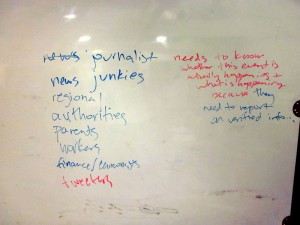 journalist
news junkies
regional
authorities
parents
workers
finance/economists
tweeters
needs to know
whether this event is
actually happening +
what is happening
because they
need to report
on verified info...